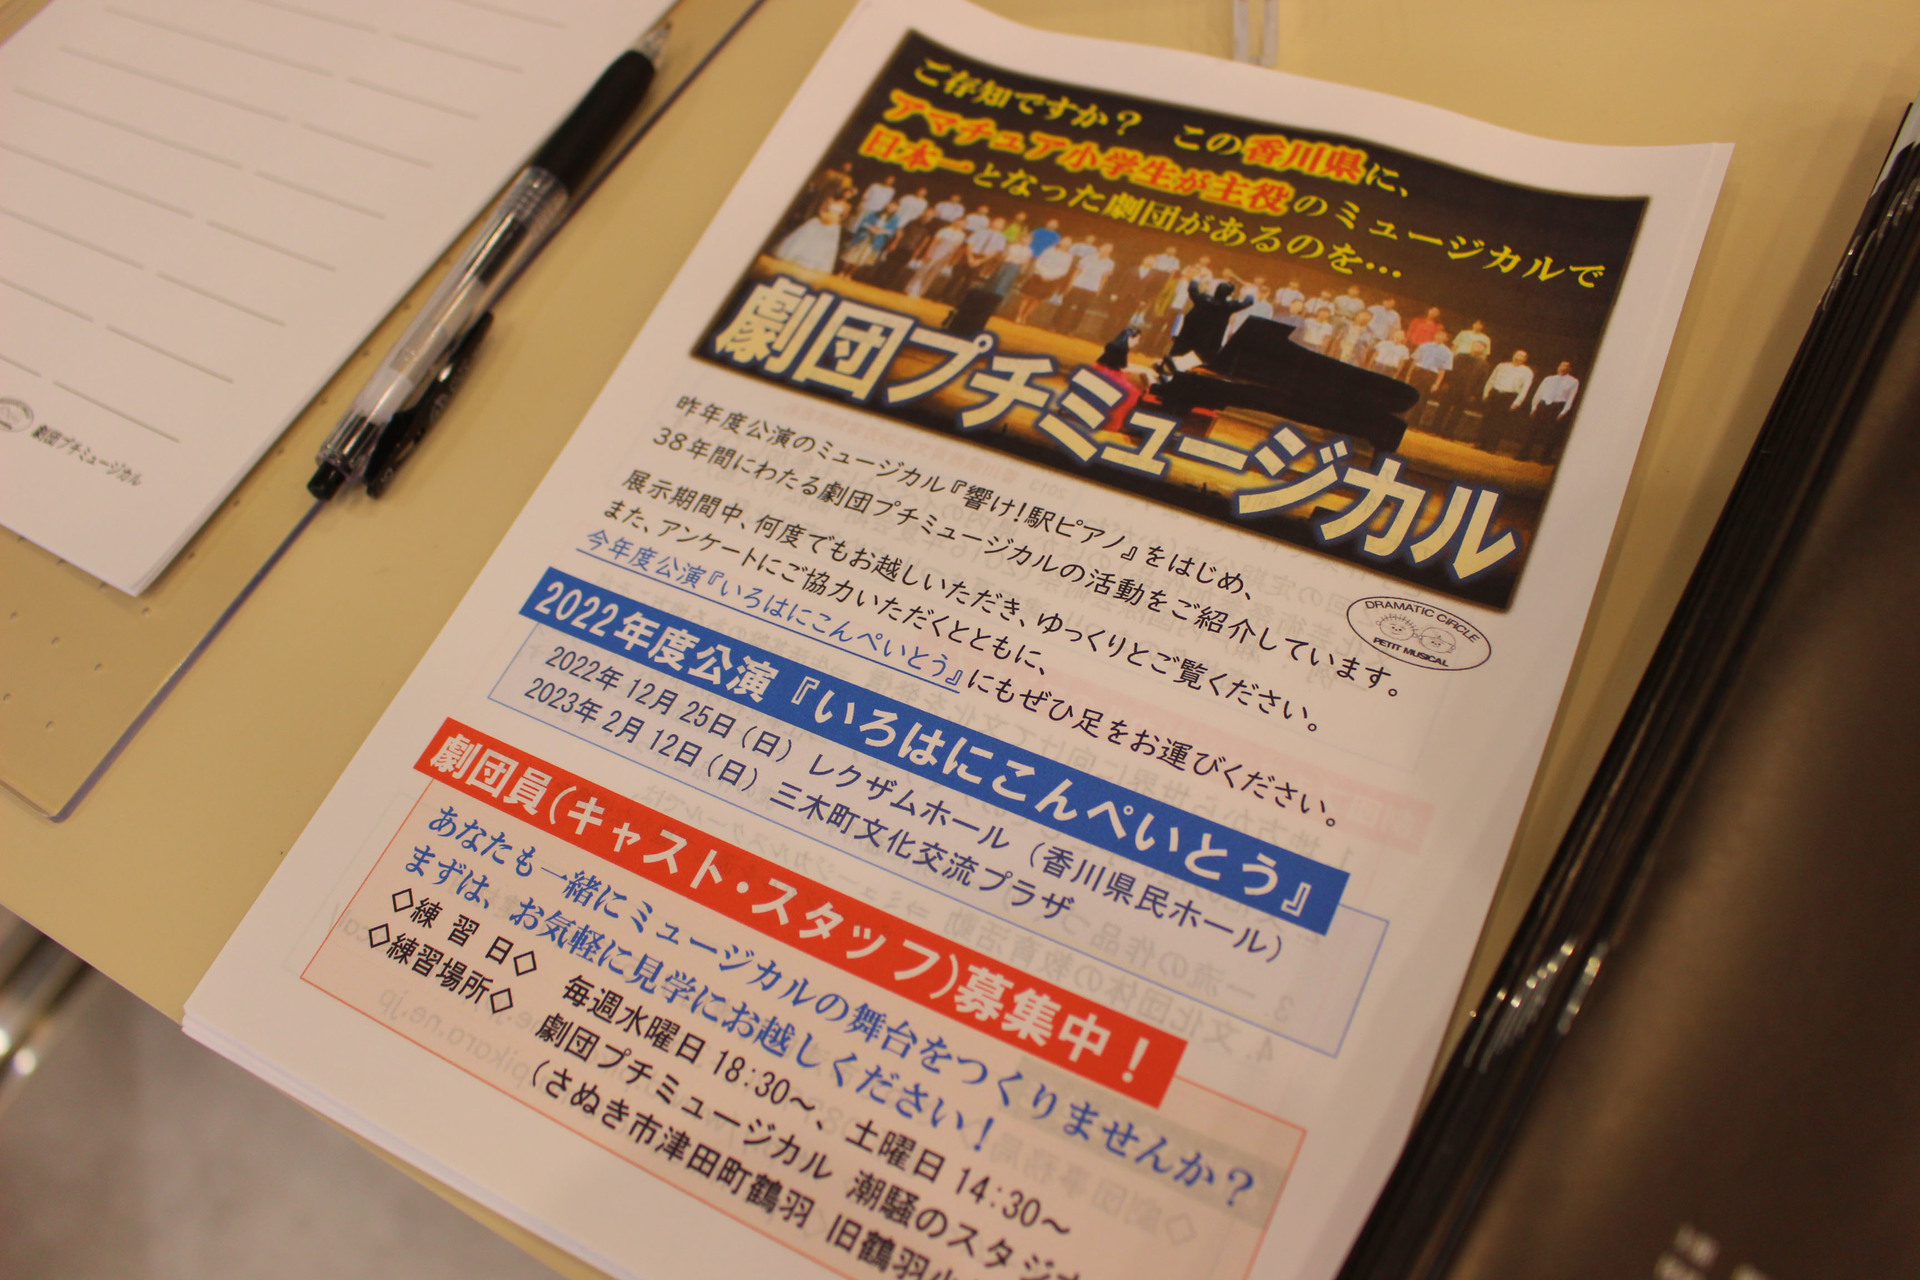 ご存知ですか？ この香川県に、
アマチュア小学生が主役のミュージカルで
日本一となった劇団があるのを…
劇団プチミュージカル
昨年度公演のミュージカル『響け！駅ピアノ』をはじめ、
38年間にわたる劇団プチミュージカルの活動をご紹介しています。
展示期間中、何度でもお越しいただき、ゆっくりとご覧ください。
また、アンケートにご協力いただくとともに、
今年度公演『いろはにこんぺいとう』にもぜひ足をお運びください。
DRAMATIC CIRCLE
PETIT MUSICAL
2022年度公演『いろはにこんぺいとう』
2022年 12月 25日（日） レクザムホール（香川県民ホール）
2023年 2月 12日（日） 三木町文化交流プラザ
劇団員（キャスト・スタッフ）募集中！
あなたも一緒にミュージカルの舞台をつくりませんか？
まずは、お気軽に見学にお越しください！
◇練 習 日◇ 毎週水曜日 18:30～、土曜日 14:30～
◇練習場所◇ 劇団プチミュージカル 潮騒のスタジオ
（さぬき市津田町鶴羽 旧鶴羽小
劇団プチミュージカル